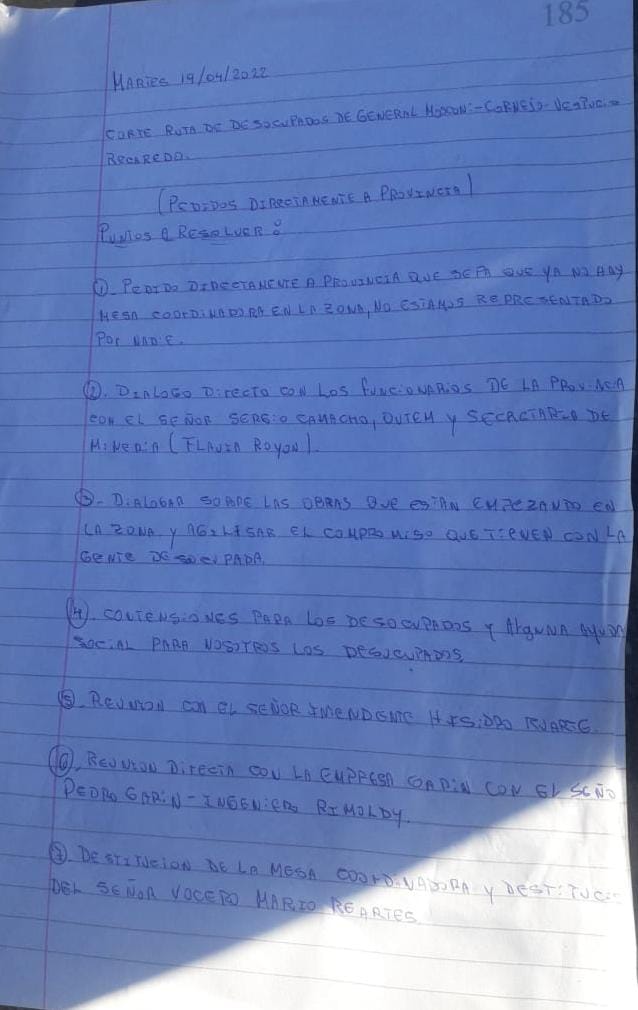 185
MARTES 19/04/2022
CORTE RUTA DE DESOCUPADOS DE GENERAL MOSCONI - CORNEJO - VESPUCIO
RECAREDO.
(PEDIDOS DIRECTAMENTE A PROVINCIA)
PUNTOS A RESOLVER:
① PEDIDO DIRECTAMENTE A PROVINCIA QUE SEPA QUE YA NO HAY
MESA COORDINADORA EN LA ZONA, NO ESTAMOS REPRESENTADO
POR NADIE.
②. DIALOGO DIRECTO CON LOS FUNCIONARIOS DE LA PROVINCIA
CON EL SEÑOR SERGIO CAMACHO, OUTEM Y SECRETARIA DE
MINERIA (FLAVIA ROYON).
③- DIALOGAR SOBRE LAS OBRAS QUE ESTAN EMPEZANDO EN
LA ZONA Y AGILISAR EL COMPROMISO QUE TIENEN CON LA
GENTE DESOCUPADA.
④. CONTENSIONES PARA LOS DESOCUPADOS Y ALGUNA AYUDA
SOCIAL PARA NOSOTROS LOS DESOCUPADOS,
⑤. REUNION CON EL SEÑOR INTENDENTE HISIDRO RUARTE.
⑥. REUNION DIRECTA CON LA EMPRESA GARIN CON EL SEÑO
PEDRO GARIN - INGENIERO RIMOLDY.
⑦. DESTITUCION DE LA MESA COORDINADORA Y DESTITUCIO
DEL SEÑOR VOCERO MARIO REARTES.